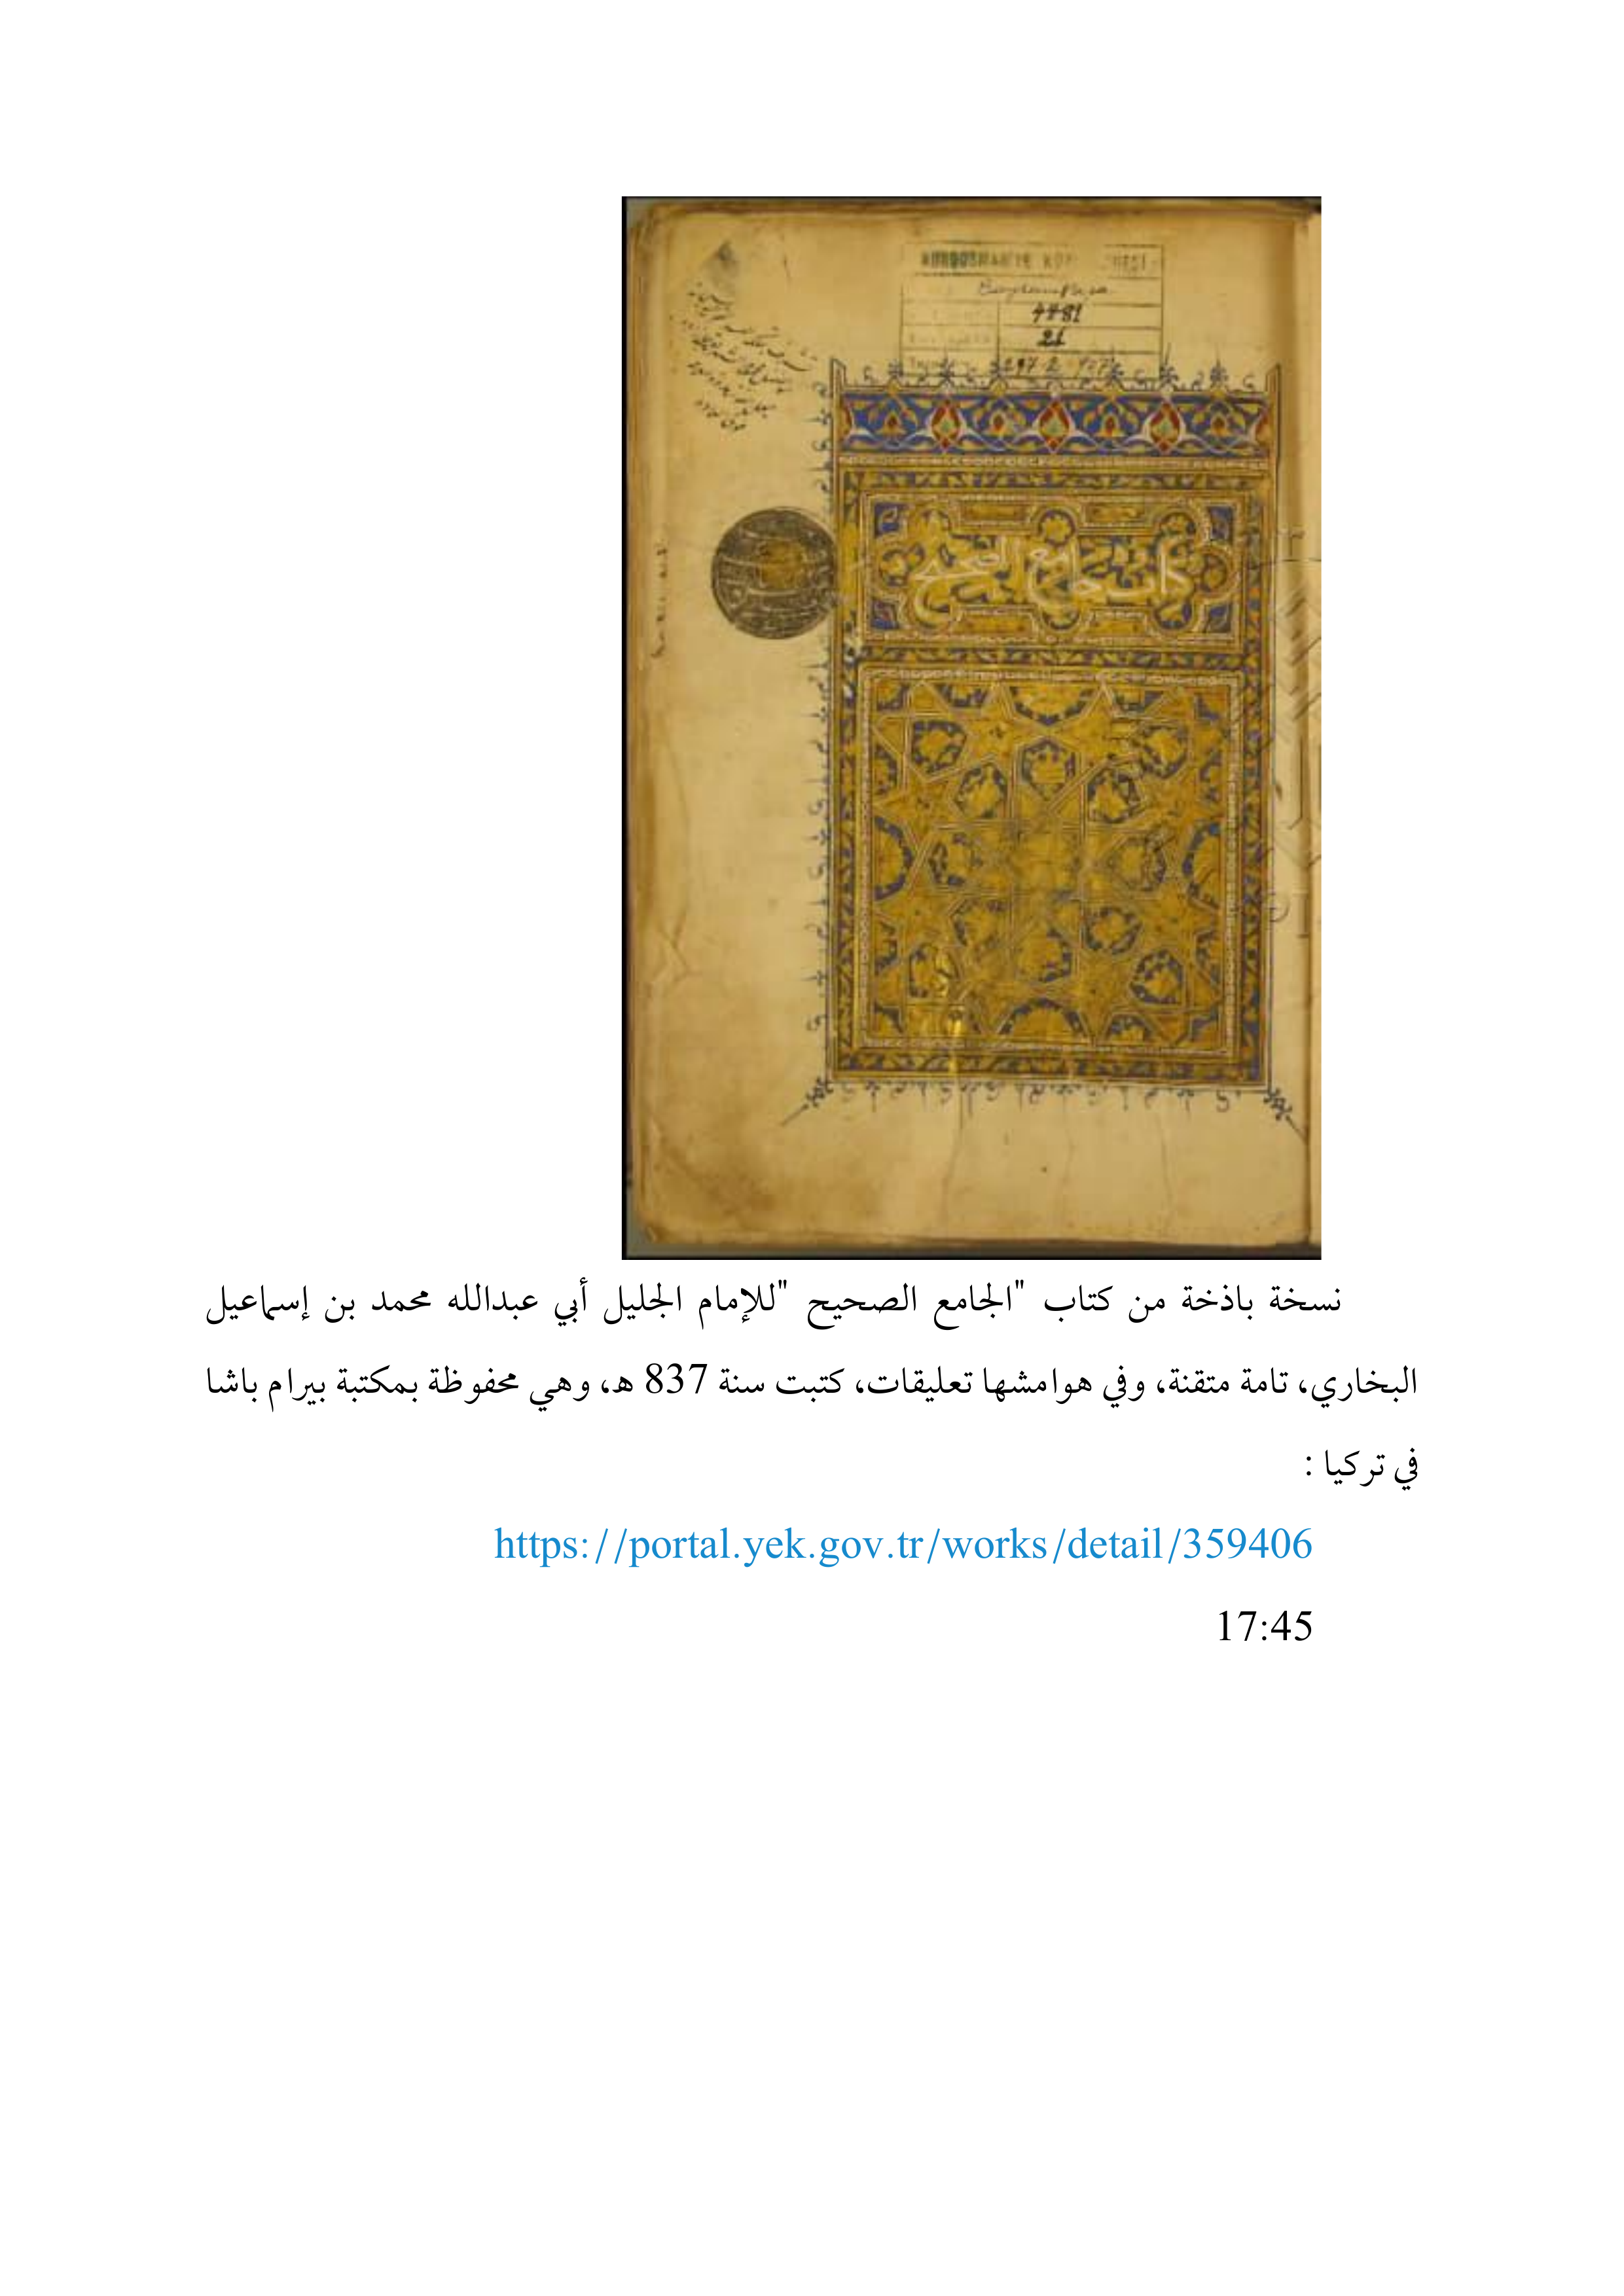 4481
21
كتاب جامع الصحيح
نسخة باذخة من كتاب "الجامع الصحيح "للإمام الجليل أبي عبدالله محمد بن إسماعيل
البخاري، تامة متقنة، وفي هوامشها تعليقات، كتبت سنة 837 هـ، وهي محفوظة بمكتبة بيرام باشا
في تركيا :
https://portal.yek.gov.tr/works/detail/359406
17:45